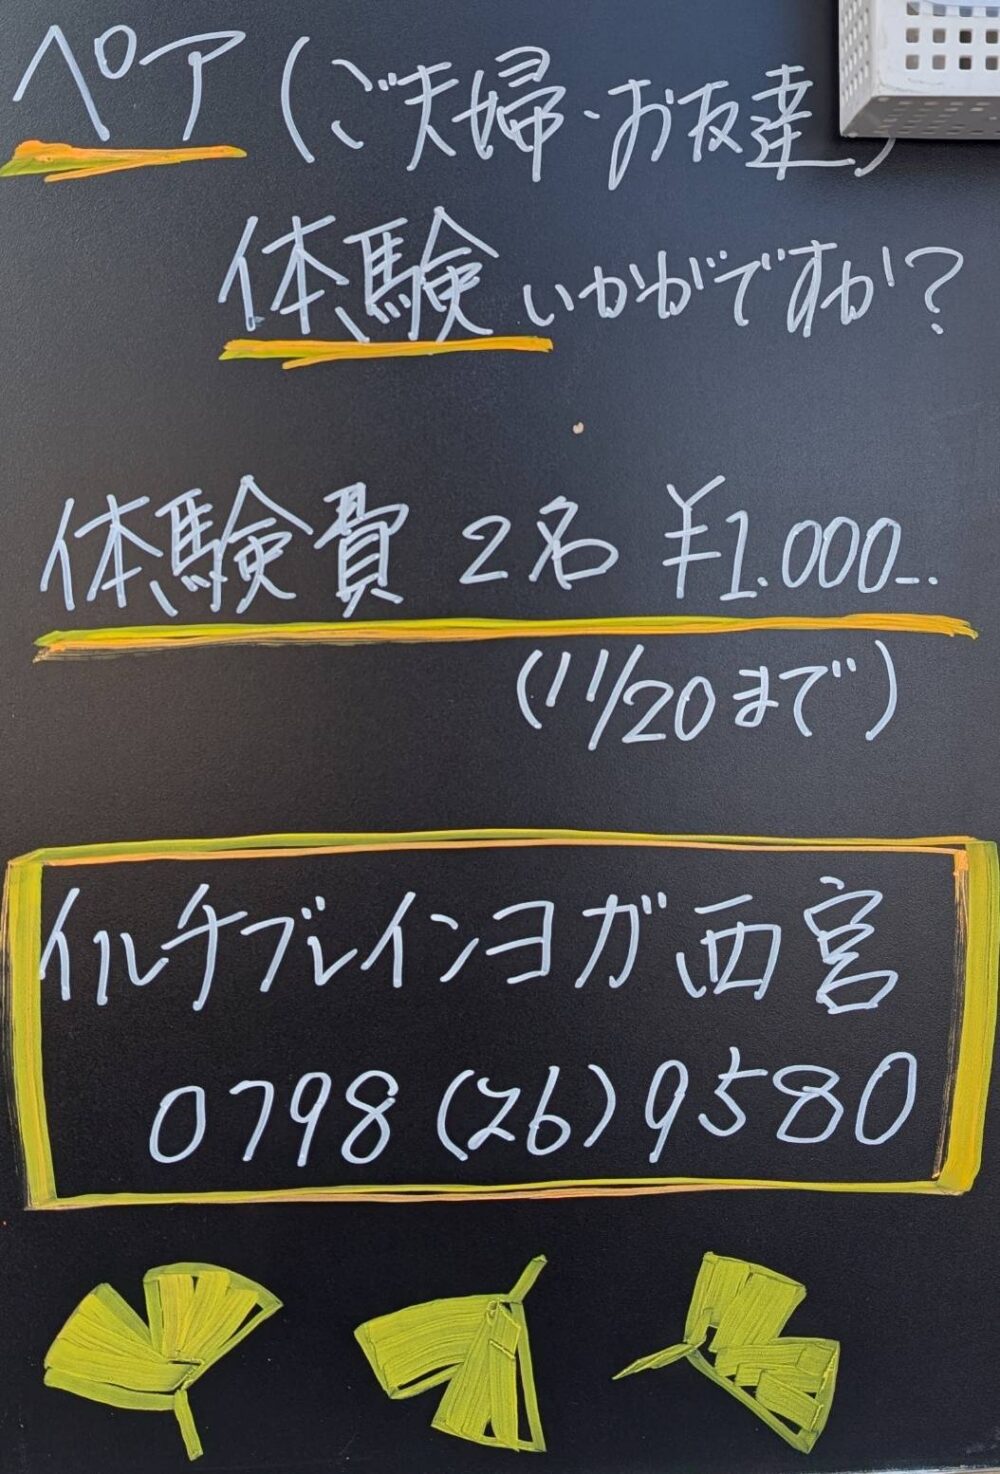 ペア(ご夫婦・お友達)
体験いかがですか?
体験費 2名 ¥1.000-.
(11/20まで)
イルチブレインヨガ西宮
0798(26)9580